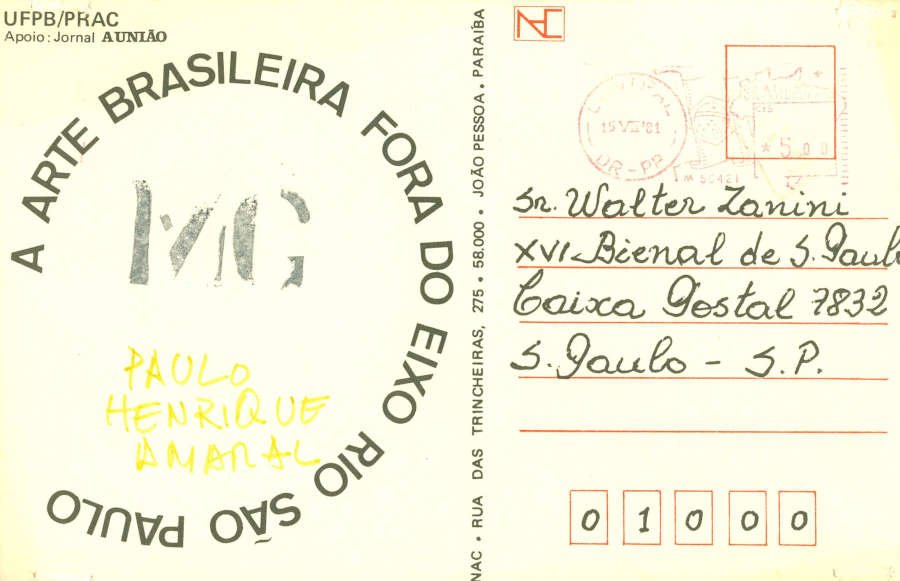 UFPB/PRAC
Apoio: Jornal A UNIÃO
A ARTE BRASILEIRA FORA DO EIXO RIO SÃO PAULO
MG
PAULO
HENRIQUE
AMARAL
NAC • RUA DAS TRINCHEIRAS, 275 • 58.000 • JOÃO PESSOA • PARAÍBA
NAC
15 VII '81
DR-PP
★ 5 00
Sr. Walter Zanini
XVI-Bienal de S. Paulo
Caixa Postal 7832
S. Paulo - S.P.
0 1 0 0 0